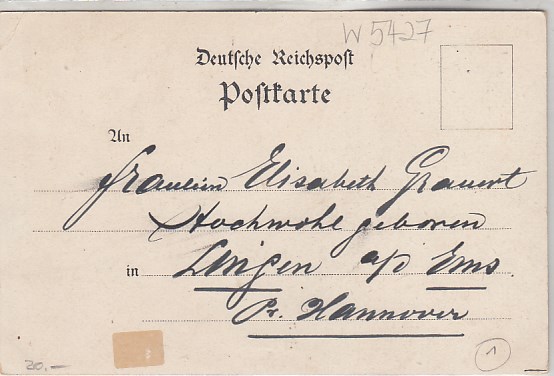 W 5427
Deutsche Reichspost
Postkarte
An
Fräulein Elisabeth Grauert
Hochwohlgeboren
in Lingen a/d Ems.
Pr. Hannover
20.—
1